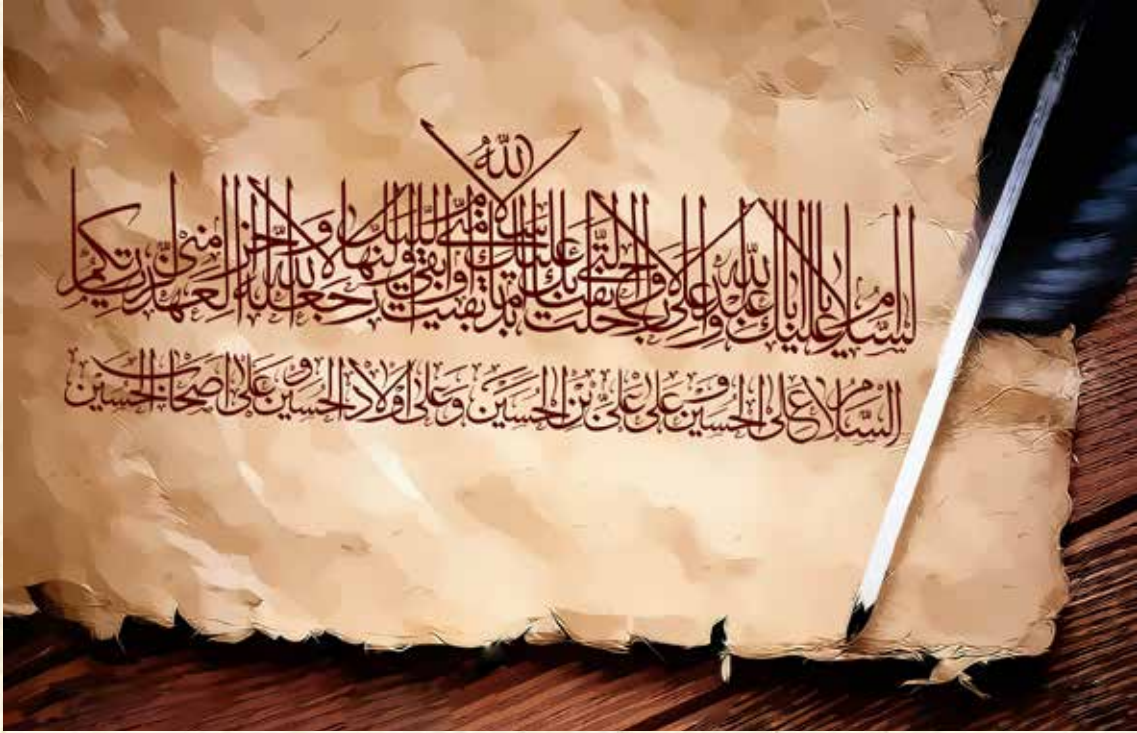 السلام علیك یا ابا عبد الله وعلی الارواح التی حلت بفنائك علیك منی سلام الله ابدا ما بقیت و بقی اللیل والنهار ولا جعله الله آخر العهد منی لزیارتکم
السلام علی الحسین و علی علی بن الحسین و علی اولاد الحسین و علی اصحاب الحسین